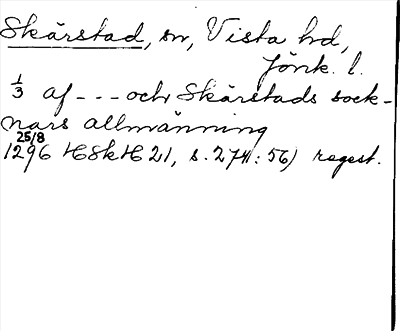 Skärstad, sn, Vista hd,
Jönk. l.
1/3 af - - - och Skärstads sock-
nars allmänning
25/8
1296 HSkH 21, s. 274 : 56) regest.